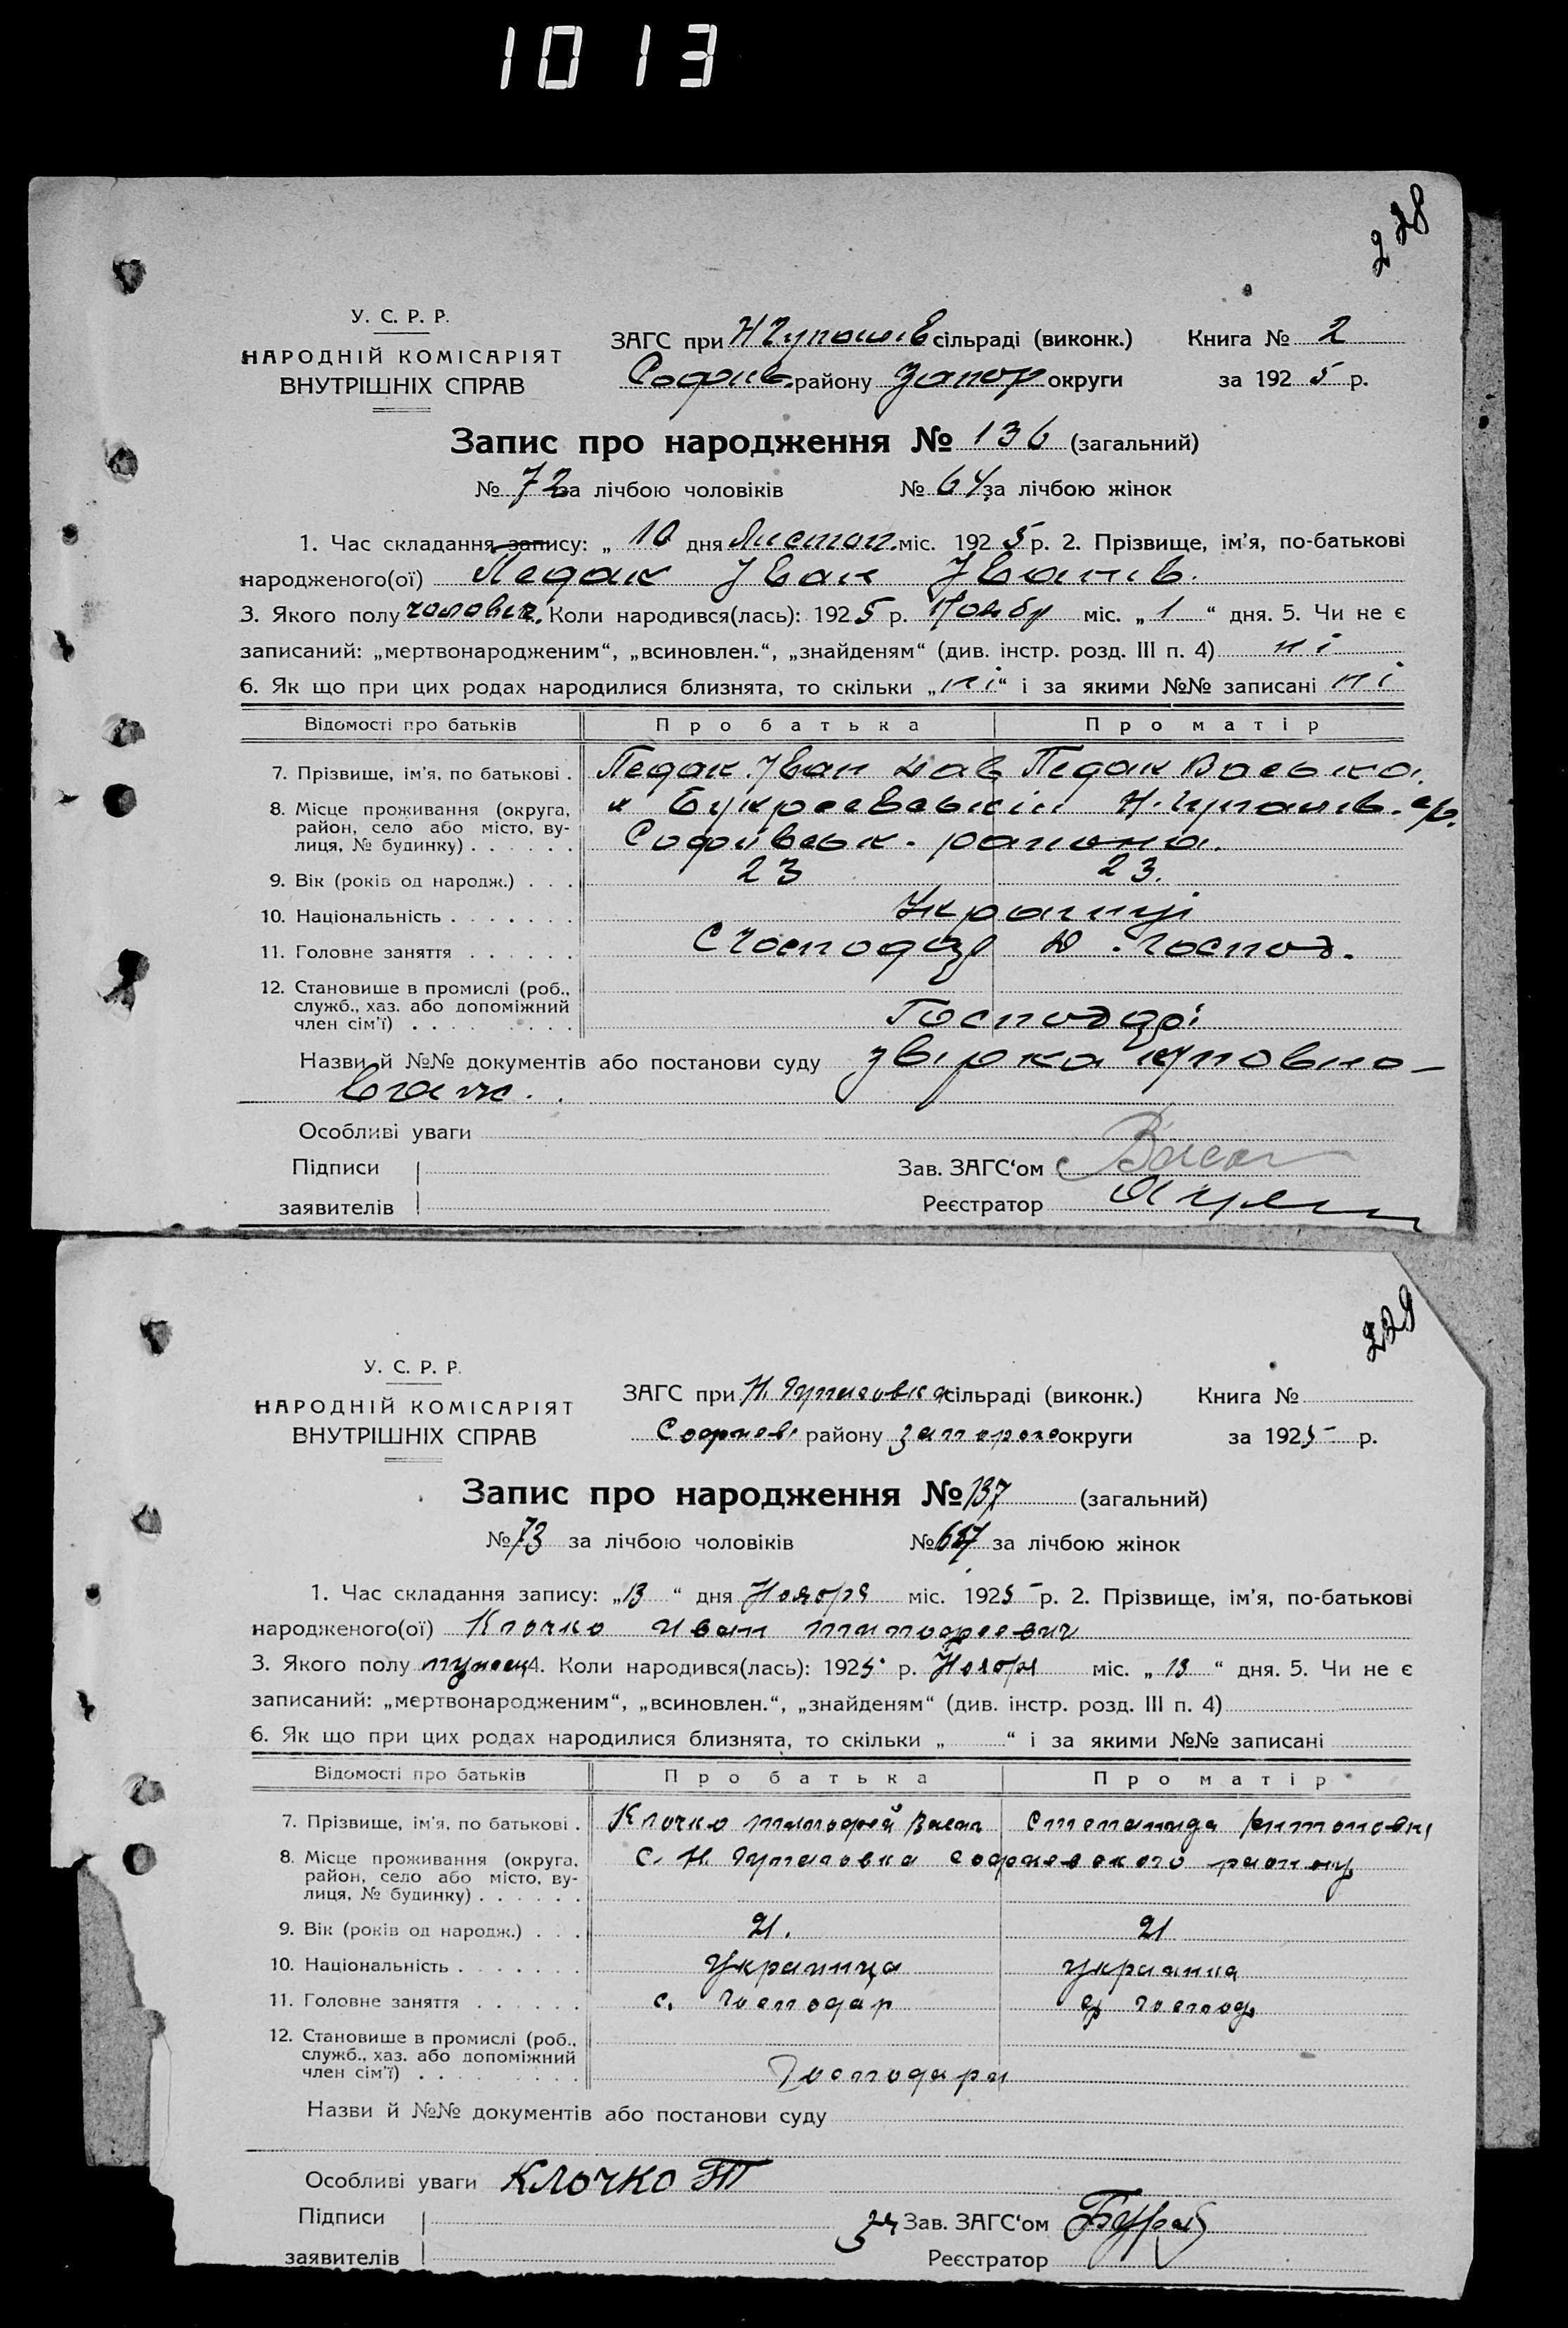 1013
228
У. С. Р. Р.
НАРОДНІЙ КОМІСАРІЯТ
ВНУТРІШНІХ СПРАВ
ЗАГС при сільраді (виконк.) Книга № 2
Софиів. району Запор округи за 1925 р.
Запис про народження № 136 (загальний)
№ 72 за лічбою чоловіків № 64 за лічбою жінок
1. Час складання запису: „ 10 дня Листоп. міс. 1925 р. 2. Прізвище, ім'я, по-батькові
народженого(ої) Педак Іван Іванів.
3. Якого полу чоловіч. Коли народився(лась): 1925 р. міс. „ 1 “ дня. 5. Чи не є
записаний: „мертвонародженим“, „всиновлен.“, „знайденям“ (див. інстр. розд. III п. 4) ні
6. Як що при цих родах народилися близнята, то скільки „ ні “ і за якими №№ записані ні
Відомості про батьків Про батька Про матір
7. Прізвище, ім'я, по батькові . Педак Іван Педак
8. Місце проживання (округа,
район, село або місто, ву-
лиця, № будинку) . . . . . . Софиівськ. района.
9. Вік (років од народж.) . . . 23 23.
10. Національність . . . . . . . Українці
11. Головне заняття . . . . . . С господар Д. господ.
12. Становище в промислі (роб.,
служб., хаз. або допоміжний
член сім'ї) . . . . . . . . . Господарі
Назви й №№ документів або постанови суду звірка
Особливі уваги
Підписи Зав. ЗАГС'ом
заявителів Реєстратор
229
У. С. Р. Р.
НАРОДНІЙ КОМІСАРІЯТ
ВНУТРІШНІХ СПРАВ
ЗАГС при сільраді (виконк.) Книга №
Софиев району запорож округи за 1925 р.
Запис про народження № 137 (загальний)
№ 73 за лічбою чоловіків № за лічбою жінок
1. Час складання запису: „ 13 “ дня Ноября міс. 1925 р. 2. Прізвище, ім'я, по-батькові
народженого(ої) Клочко Иван Тимофеевич
3. Якого полу 4. Коли народився(лась): 1925 р. Ноября міс. „ 13 “ дня. 5. Чи не є
записаний: „мертвонародженим“, „всиновлен.“, „знайденям“ (див. інстр. розд. III п. 4)
6. Як що при цих родах народилися близнята, то скільки „ “ і за якими №№ записані
Відомості про батьків Про батька Про матір
7. Прізвище, ім'я, по батькові . Клочко Тимофей Васил Степанида
8. Місце проживання (округа,
район, село або місто, ву-
лиця, № будинку) . . . . . . с. Н. софиевского району
9. Вік (років од народж.) . . . 21. 21
10. Національність . . . . . . . украинка
11. Головне заняття . . . . . . с. господар д господ
12. Становище в промислі (роб.,
служб., хаз. або допоміжний
член сім'ї) . . . . . . . . . Господари
Назви й №№ документів або постанови суду
Особливі уваги Клочко Т
Підписи за Зав. ЗАГС'ом
заявителів Реєстратор